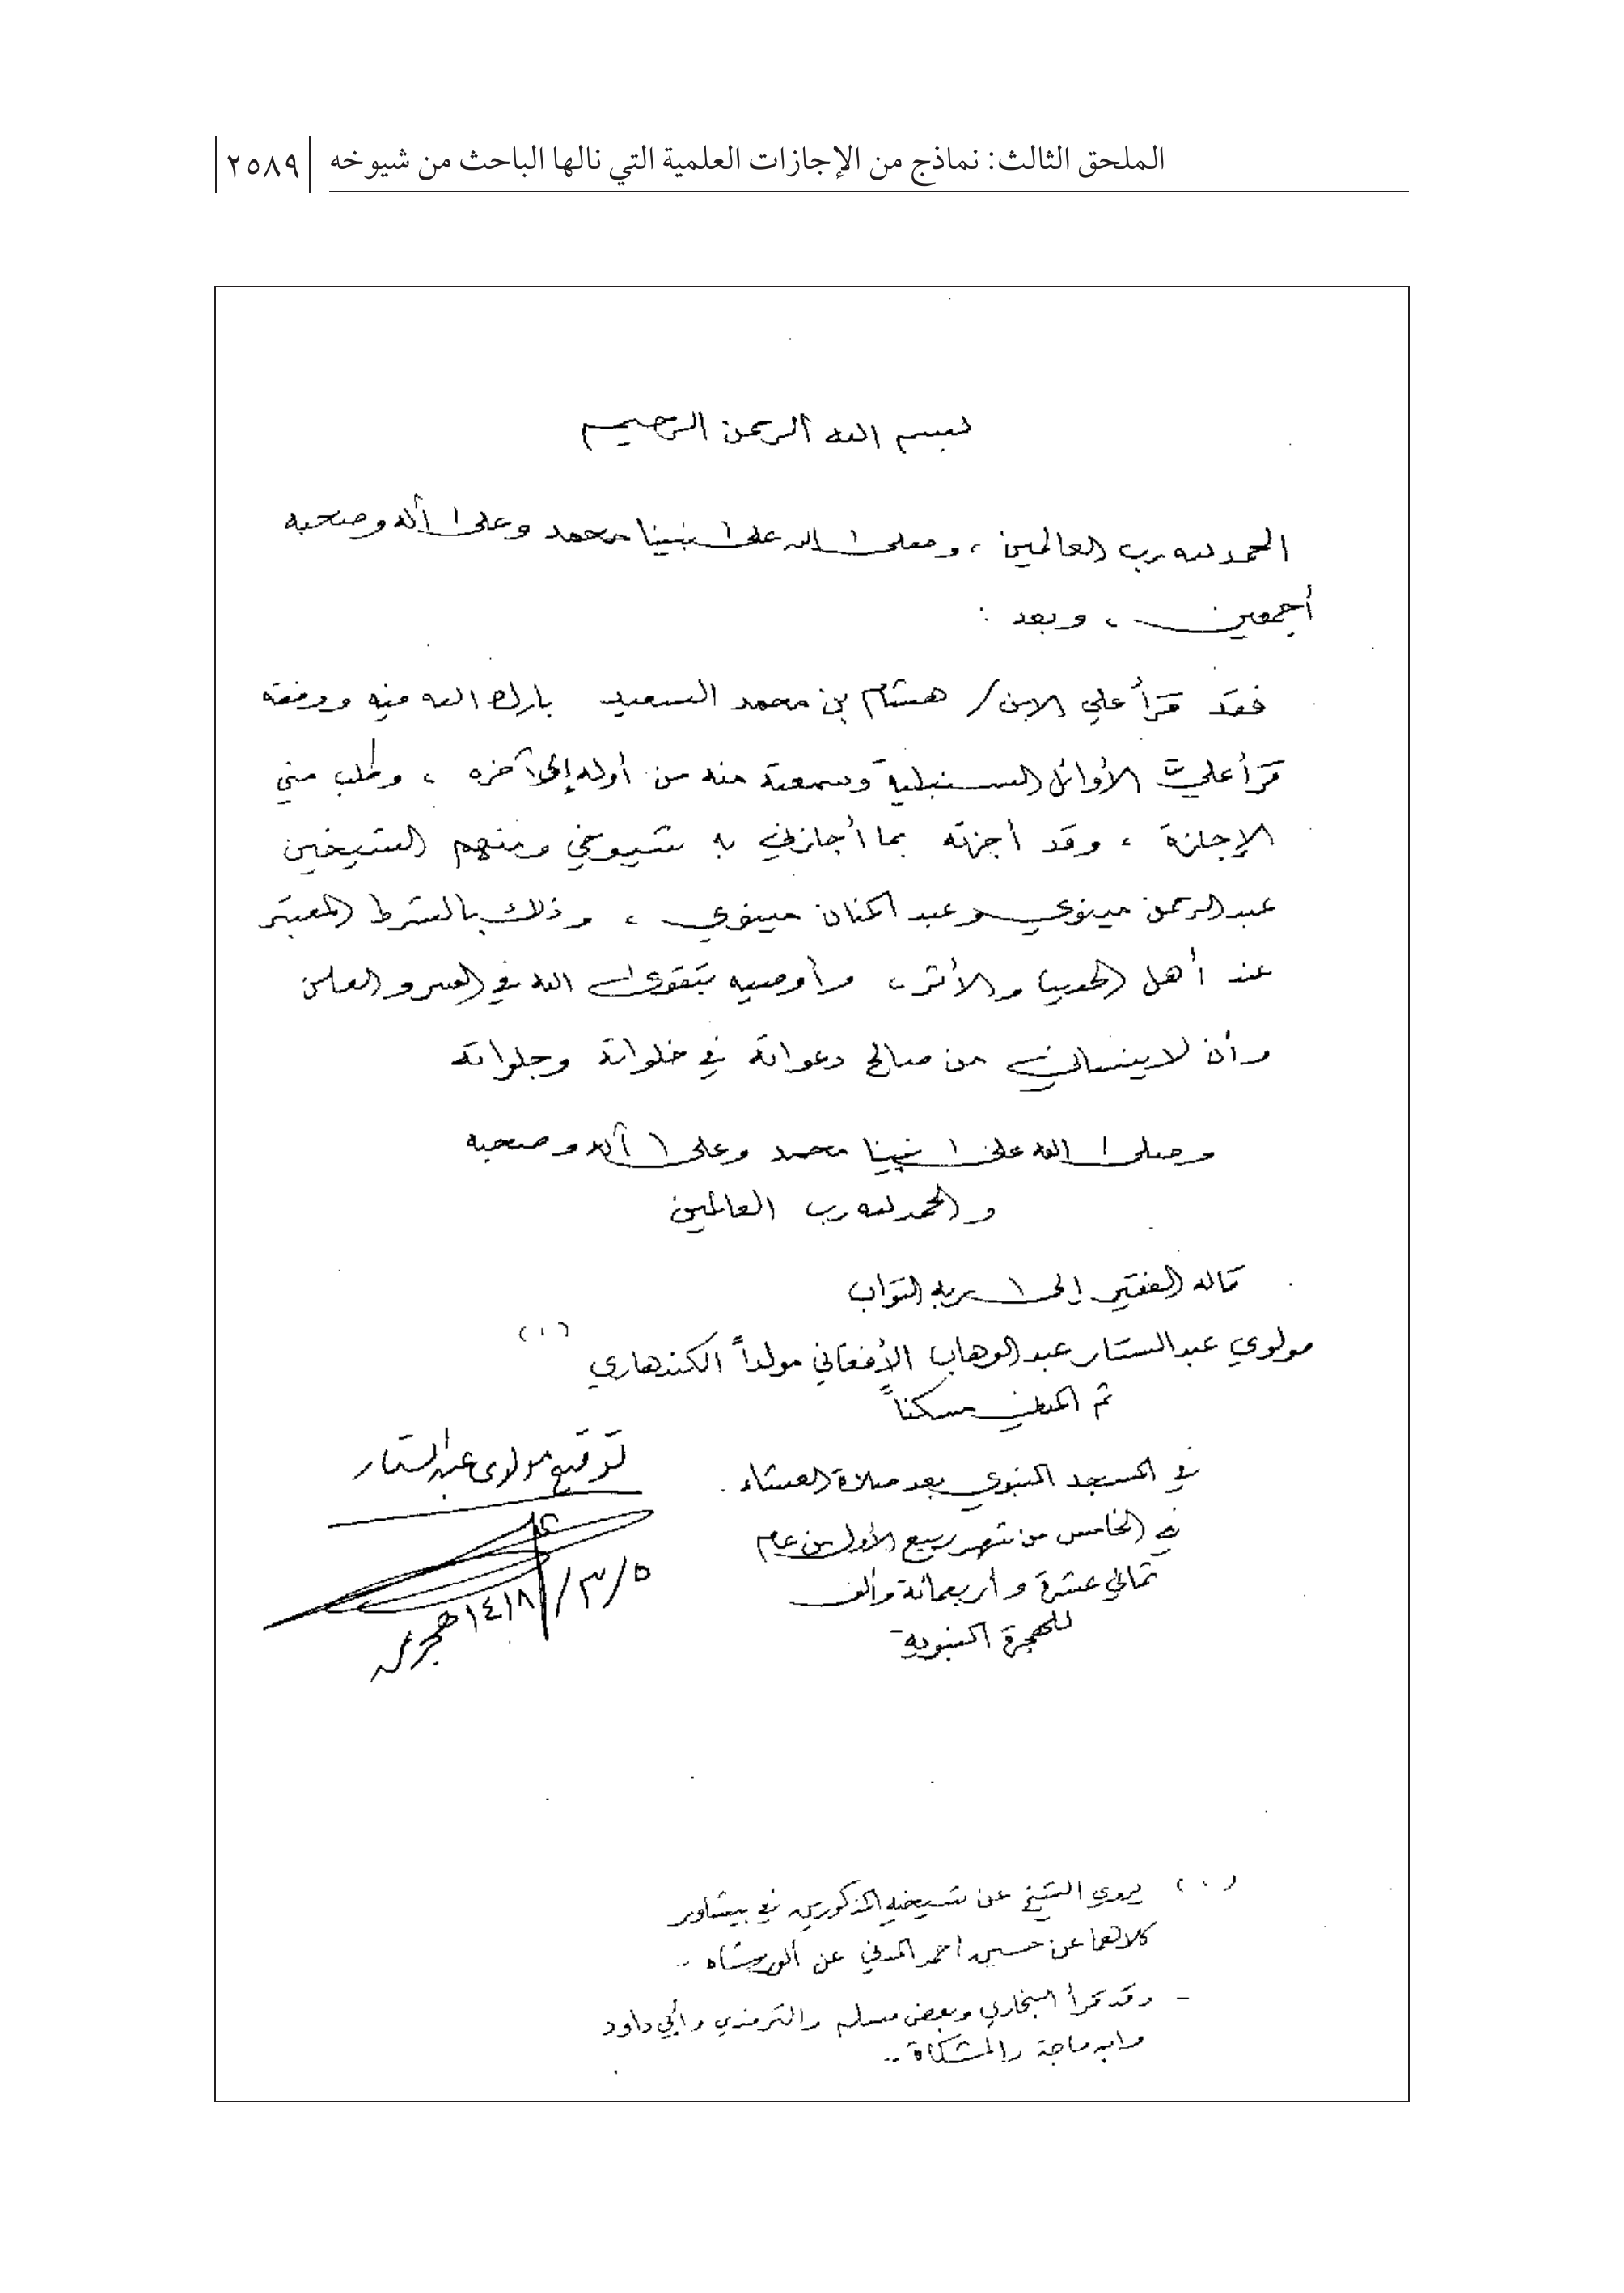 الملحق الثالث: نماذج من الإجازات العلمية التي نالها الباحث من شيوخه
٢٥٨٩
بسم الله الرحمن الرحيم
الحمد لله رب العالمين، وصلى الله على نبينا محمد وعلى آله وصحبه
أجمعين، وبعد:
فقد قرأ علي الابن/ هشام بن محمد السعيد بارك الله فيه ووفقه
قرأ عليَّ الأوائل السنبلية وسمعته منه من أوله إلى آخره، وطلب مني
الإجازة، وقد أجزته بما أجازني به شيوخي ومنهم الشيخين
عبد الرحمن مينوي وعبد الحنان مينوي، وذلك بالشرط المعتبر
عند أهل الحديث والأثر، وأوصيه بتقوى الله في السر والعلن
وأن لا ينساني من صالح دعواته في خلواته وجلواته
وصلى الله على نبينا محمد وعلى آله وصحبه
والحمد لله رب العالمين
قاله الفقير إلى ربه التواب
مولوي عبد الستار عبد الوهاب الأفغاني مولداً الكندهاري (١)
ثم المدني مسكناً
توقيع مولوي عبد الستار
في المسجد النبوي بعد صلاة العشاء.
في الخامس من شهر ربيع الأول من عام
ثماني عشرة وأربعمائة وألف
للهجرة النبوية
٥/٣/١٤١٨ هجري
(١) يروي الشيخ عن شيخيه المذكورين في بيشاور
كلاهما عن حسين أحمد المدني عن أنور شاه ..
- وقد قرأ البخاري وبعض مسلم والترمذي وأبي داود
وابن ماجة والمشكاة ..